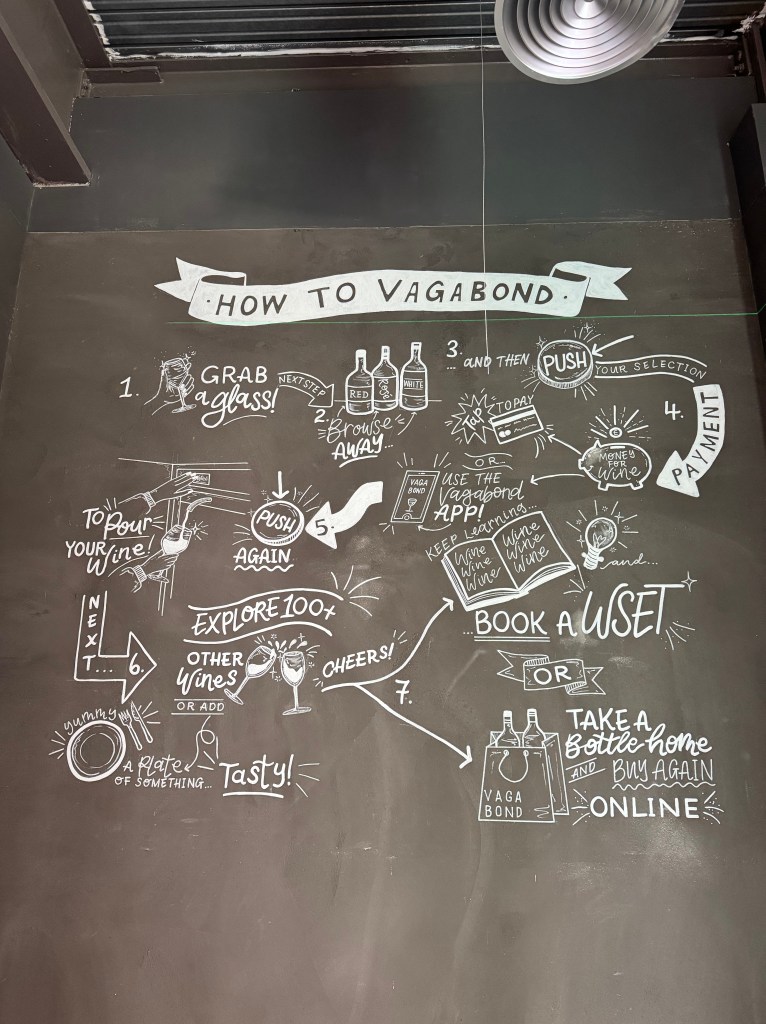 HOW TO VAGABOND
1.
GRAB
a glass!
NEXT STEP
2.
RED
ROSE
WHITE
Browse
AWAY...
3.
... AND THEN
PUSH
YOUR SELECTION
4.
PAYMENT
MONEY
FOR
Wine
TAP
TO PAY
OR
VAGA
BOND
USE THE
Vagabond
APP!
5.
PUSH
AGAIN
TO Pour
YOUR Wine!
NEXT...
6.
EXPLORE 100+
OTHER
Wines
OR ADD
yummy
A Plate
OF SOMETHING...
Tasty!
CHEERS!
7.
KEEP Learning...
Wine
Wine
Wine
Wine
Wine
Wine
and...
...BOOK A WSET
OR
VAGA
BOND
TAKE A
Bottle home
AND BUY AGAIN
ONLINE